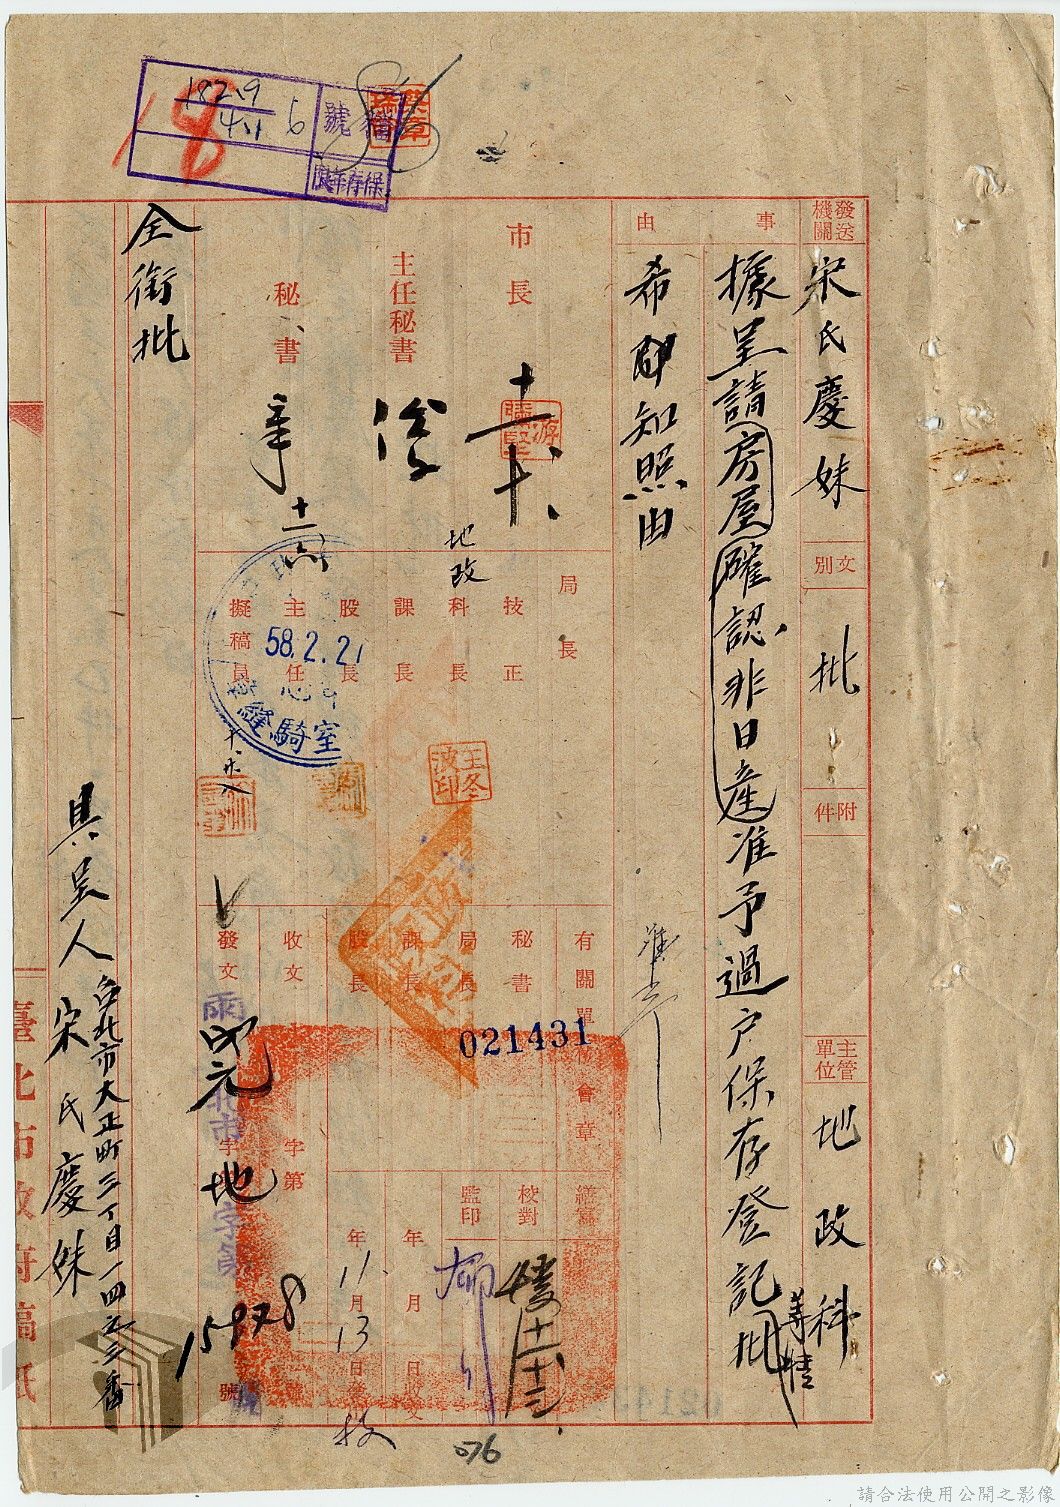 182.9
4.1
6
檔號
保存年限
發送機關
宋氏慶妹
文別
批
附件
主管單位
地政科
事由
據呈請房屋確認非日產准予過戶保存登記
批
希即知照由
市長
主任秘書
秘書
局長
技正
科長
地政
課長
股長
主任
擬稿員
58.2.21
室騎縫
王冬波印
有關單位會章
秘書
局長
課長
股長
021431
繕寫
校對
監印
年月日收文
年11月13日發
收文
字第
號
發文
地
字第
15978
號
校
全銜批
具呈人
台北市大正町三丁目一四
宋氏慶妹
臺北市政府稿紙
076
請合法使用公開之影像